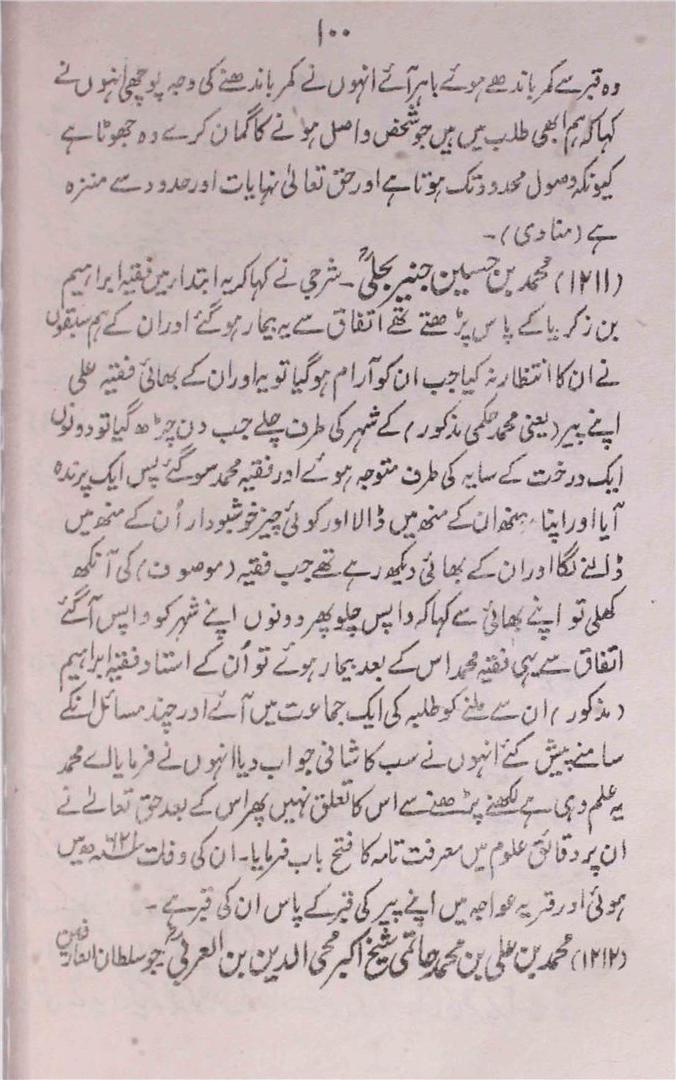 ۱۰۰
وہ قبر سے کمر باندھے ہوئے باہر آئے انہوں نے کمر باندھنے کی وجہ پوچھی انہوں نے
کہا کہ ہم ابھی طلب میں ہیں جو شخص واصل ہونے کا گمان کرے وہ جھوٹا ہے
کیونکہ وصول محدود تک ہوتا ہے اور حق تعالیٰ نہایات اور حدود سے منزہ
ہے (مناوی)۔
(۱۲۱۱) محمد بن حسین جنیر بجلیؒ۔ شرجی نے کہا کہ یہ ابتدار میں فقیہ ابراہیم
بن زکریا کے پاس پڑھتے تھے اتفاق سے یہ بیمار ہو گئے اور ان کے ہم سبقوں
نے ان کا انتظار نہ کیا جب ان کو آرام ہو گیا تو یہ اور ان کے بھائی فقیہ علی
اپنے پیر (یعنی محمد حکمی مذکور) کے شہر کی طرف چلے جب دن چڑھ گیا تو دونوں
ایک درخت کے سایہ کی طرف متوجہ ہوئے اور فقیہ محمد سو گئے پس ایک پرندہ
آیا اور اپنا منھ ان کے منھ میں ڈالا اور کوئی چیز خوشبودار اُن کے منھ میں
ڈالنے لگا اور ان کے بھائی دیکھ رہے تھے جب فقیہ (موصوف) کی آنکھ
کھلی تو اپنے بھائی سے کہا کہ واپس چلو پھر دونوں اپنے شہر کو واپس آ گئے
اتفاق سے یہی فقیہ محمد اس کے بعد بیمار ہوئے تو اُن کے استاد فقیہ ابراہیم
(مذکور) ان سے ملنے کو طلبہ کی ایک جماعت میں آئے اور چند مسائل انکے
سامنے پیش کئے انہوں نے سب کا شافی جواب دیا انہوں نے فرمایا اے محمد
یہ علم وہی ہے لکھنے پڑھنے سے اس کا تعلق نہیں پھر اس کے بعد حق تعالےٰ نے
ان پر دقائق علوم میں معرفت تامہ کا فتح باب فرمایا۔ ان کی وفات ۶۲۱ ھ میں
ہوئی اور قریہ عواجہ میں اپنے پیر کی قبر کے پاس ان کی قبر ہے۔
(۱۲۱۲) محمد بن علی بن محمد حاتمی شیخ اکبر محی الدین بن العربیؒ جو سلطان العارفین